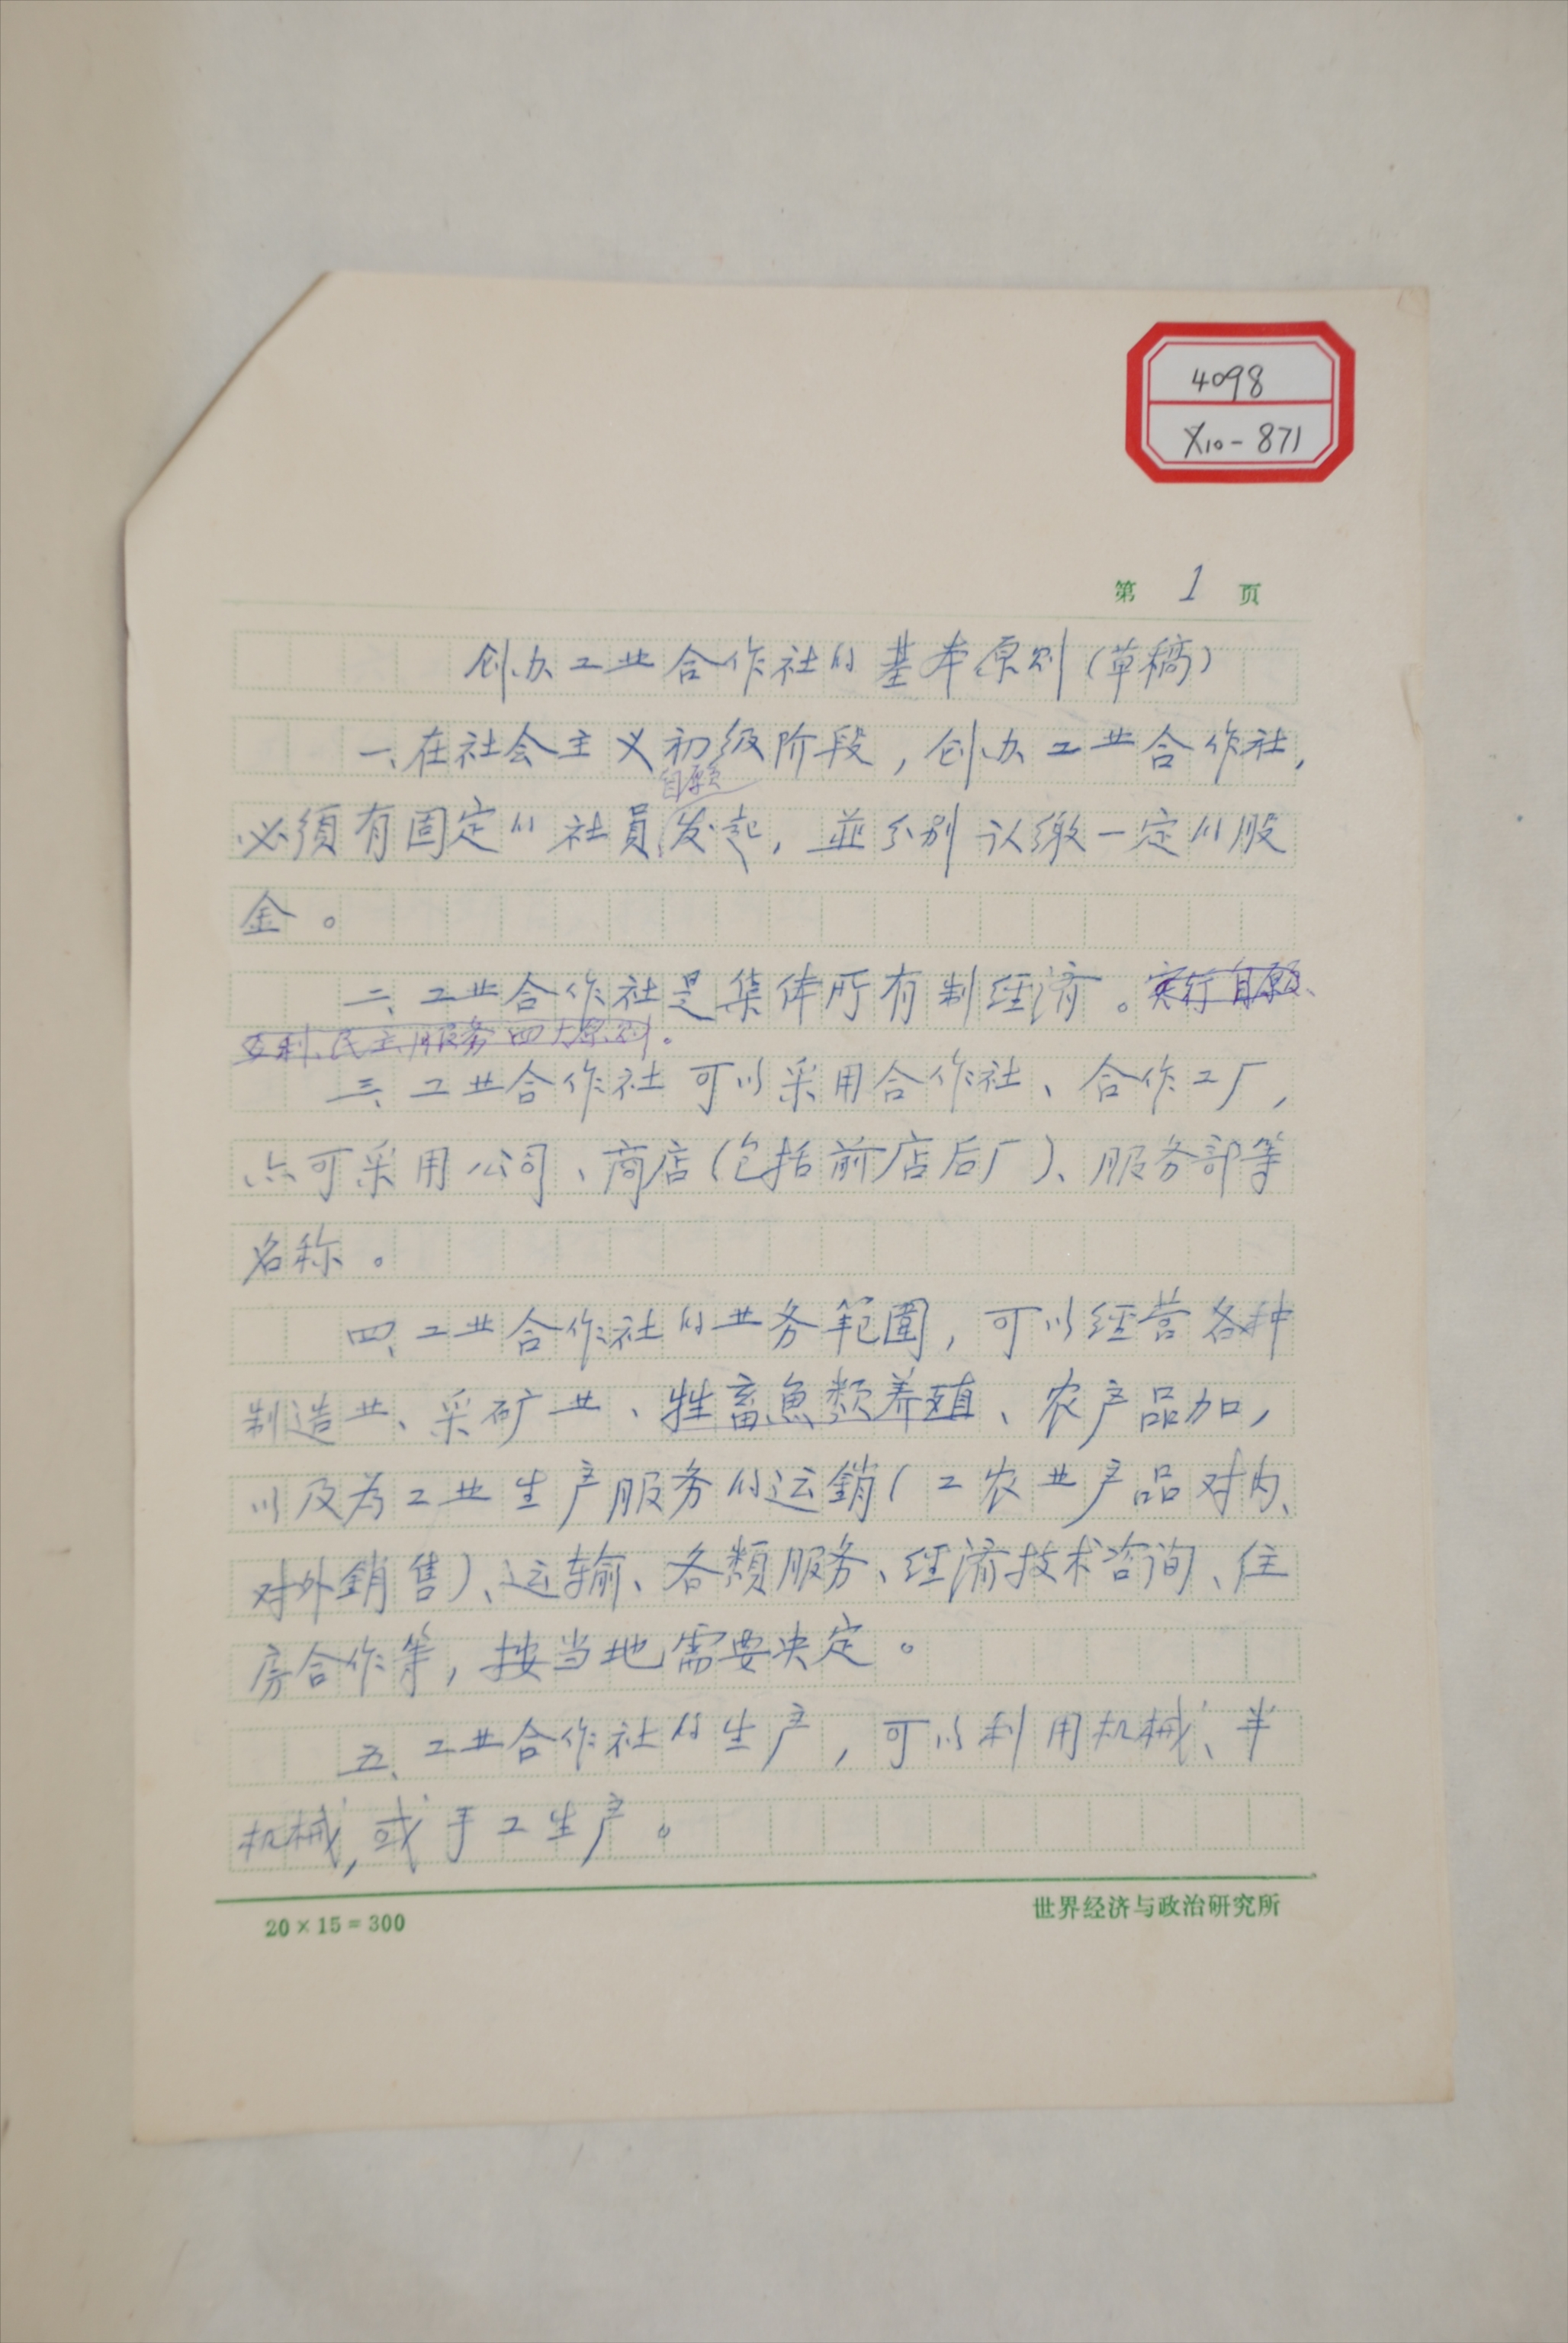 4098
X10-871
第 1 页
创办工业合作社的基本原则(草稿)
一、在社会主义初级阶段,创办工业合作社,
自愿
必须有固定的社员发起,並分别认缴一定的股
金。
二、工业合作社是集体所有制经济。实行自愿、
互利、民主、服务四大原则。
三、工业合作社可以采用合作社、合作工厂,
亦可采用公司、商店(包括前店后厂)、服务部等
名称。
四、工业合作社的业务範圍,可以经营各种
制造业、采矿业、牲畜魚类养殖、农产品加,
以及为工业生产服务的运銷(工农业产品对内、
对外銷售)、运输、各類服务、经济技术咨询、住
房合作等,按当地需要决定。
五、工业合作社的生产,可以利用机械、半
机械,或手工生产。
20×15=300
世界经济与政治研究所